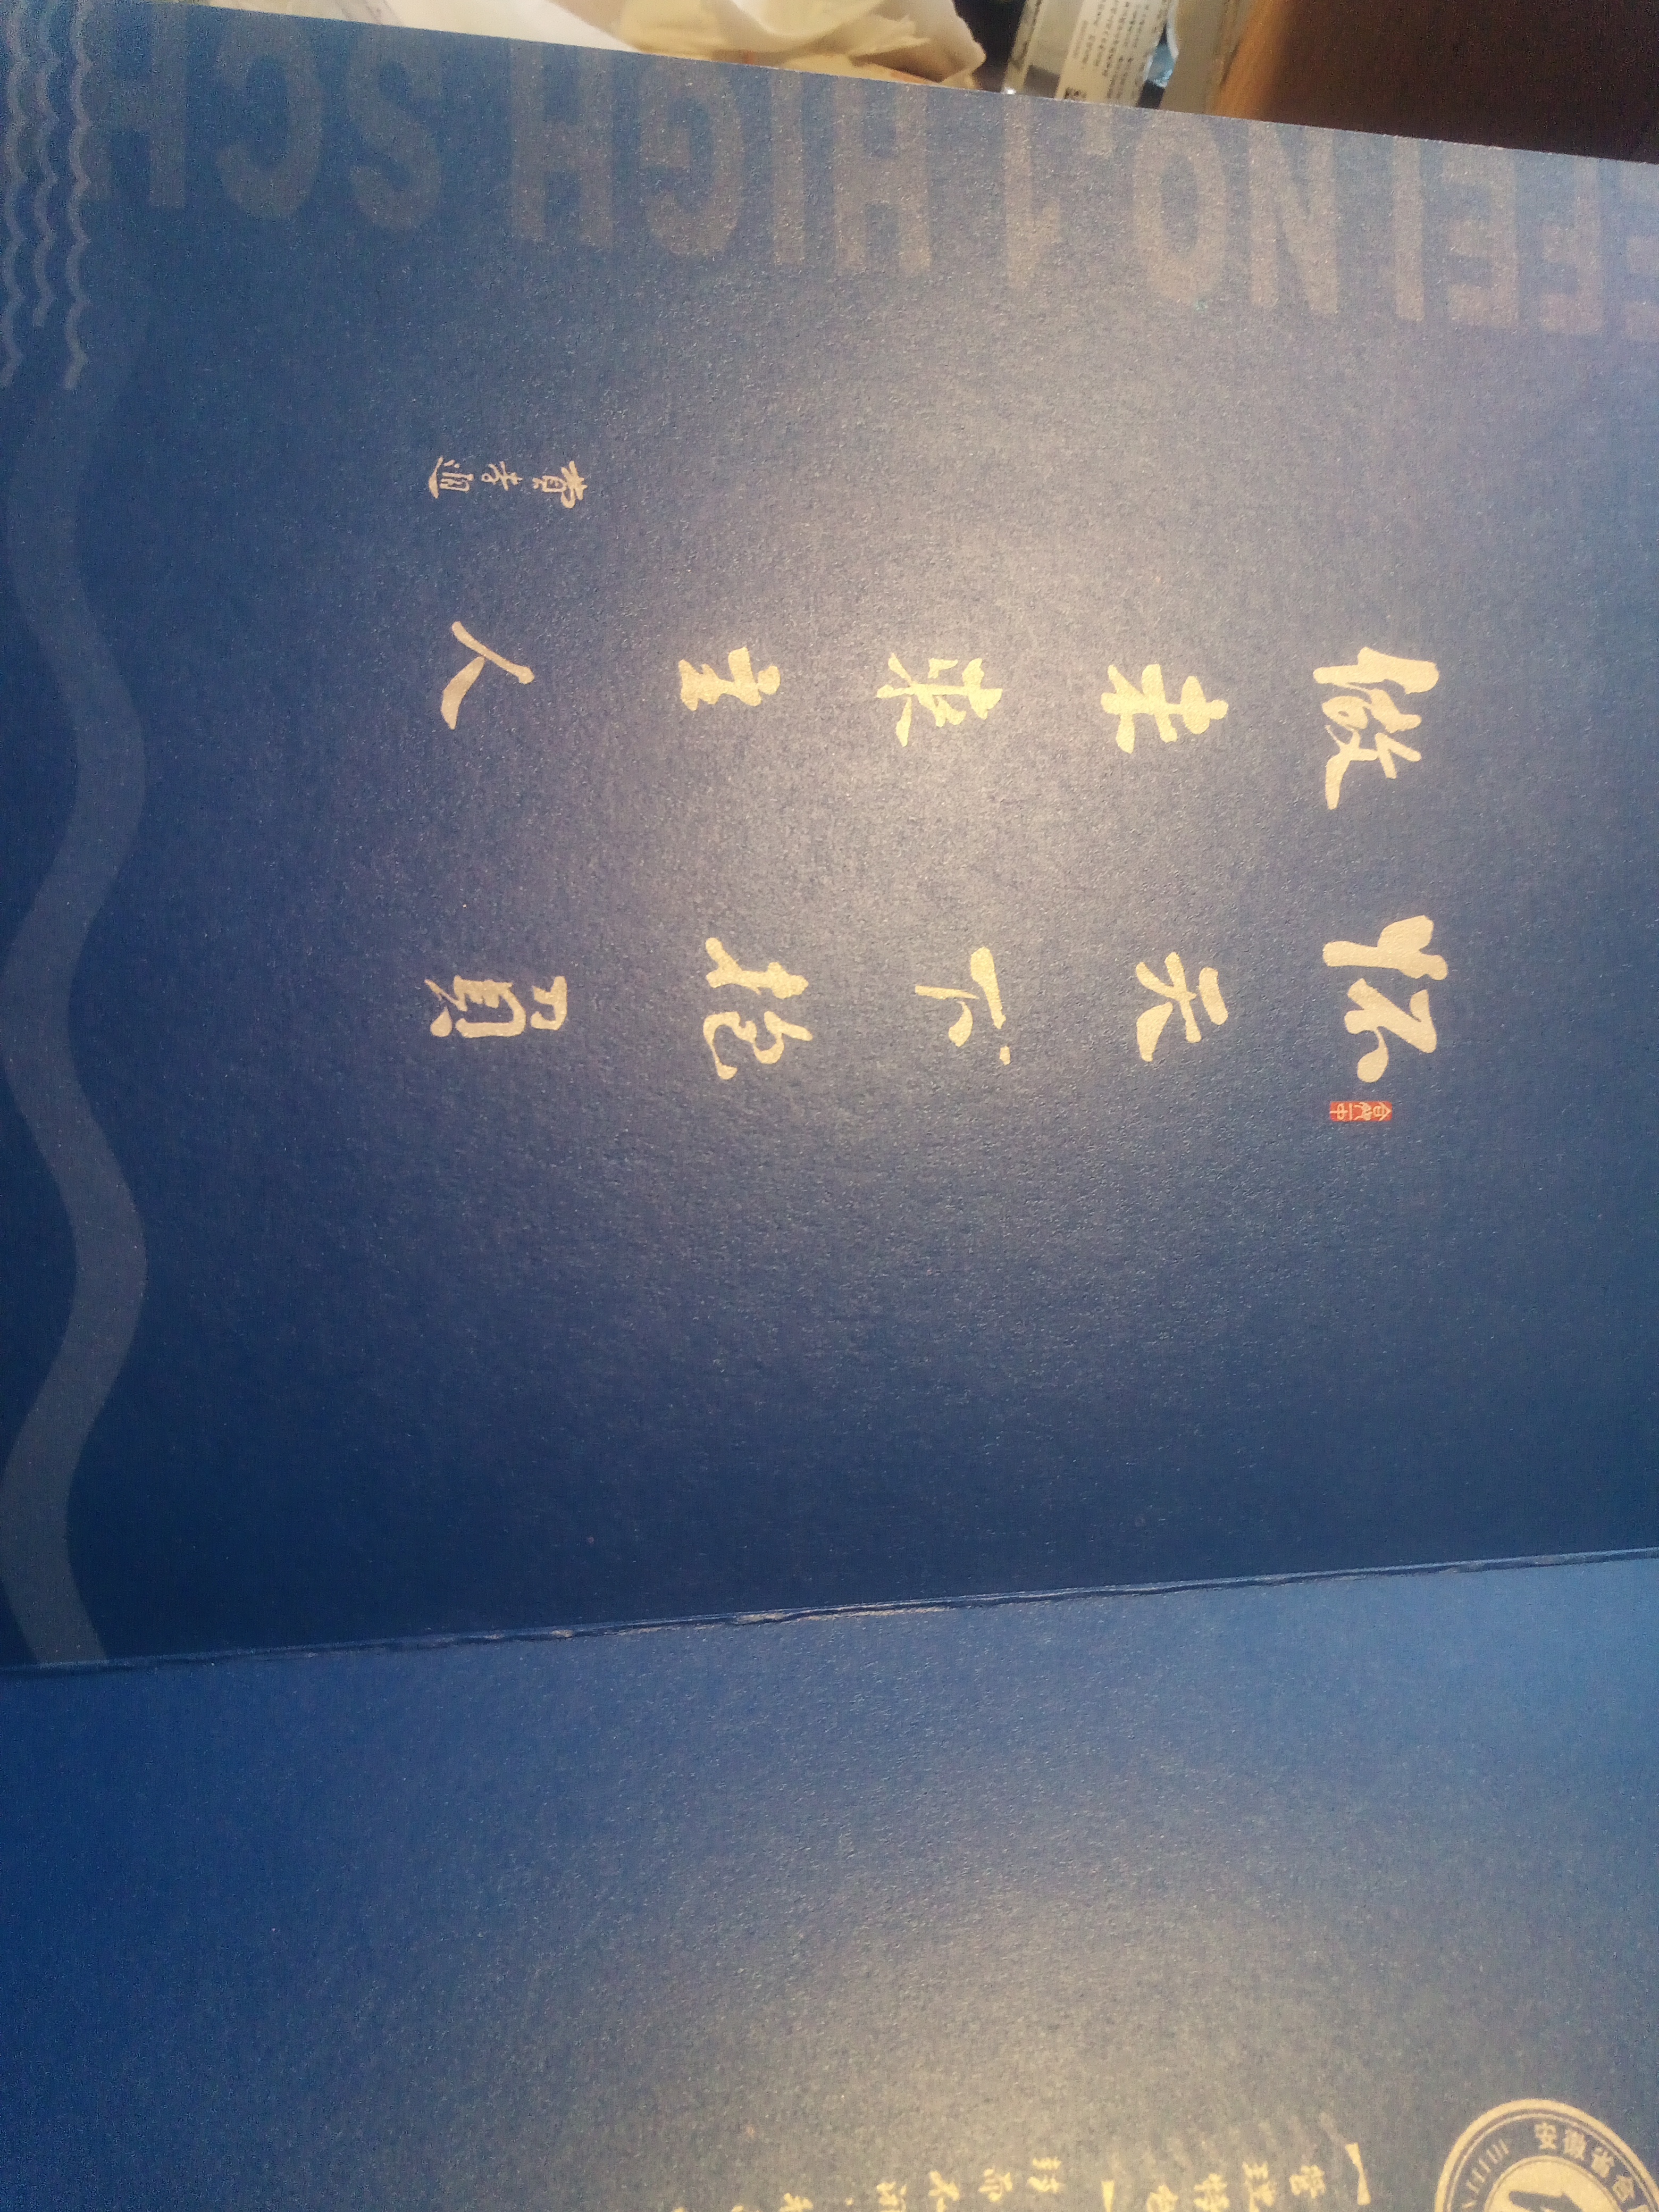 怀天下抱負
做未来主人
费孝通
合肥一中
FEI NO.1 HIGH SCH
安徽省合